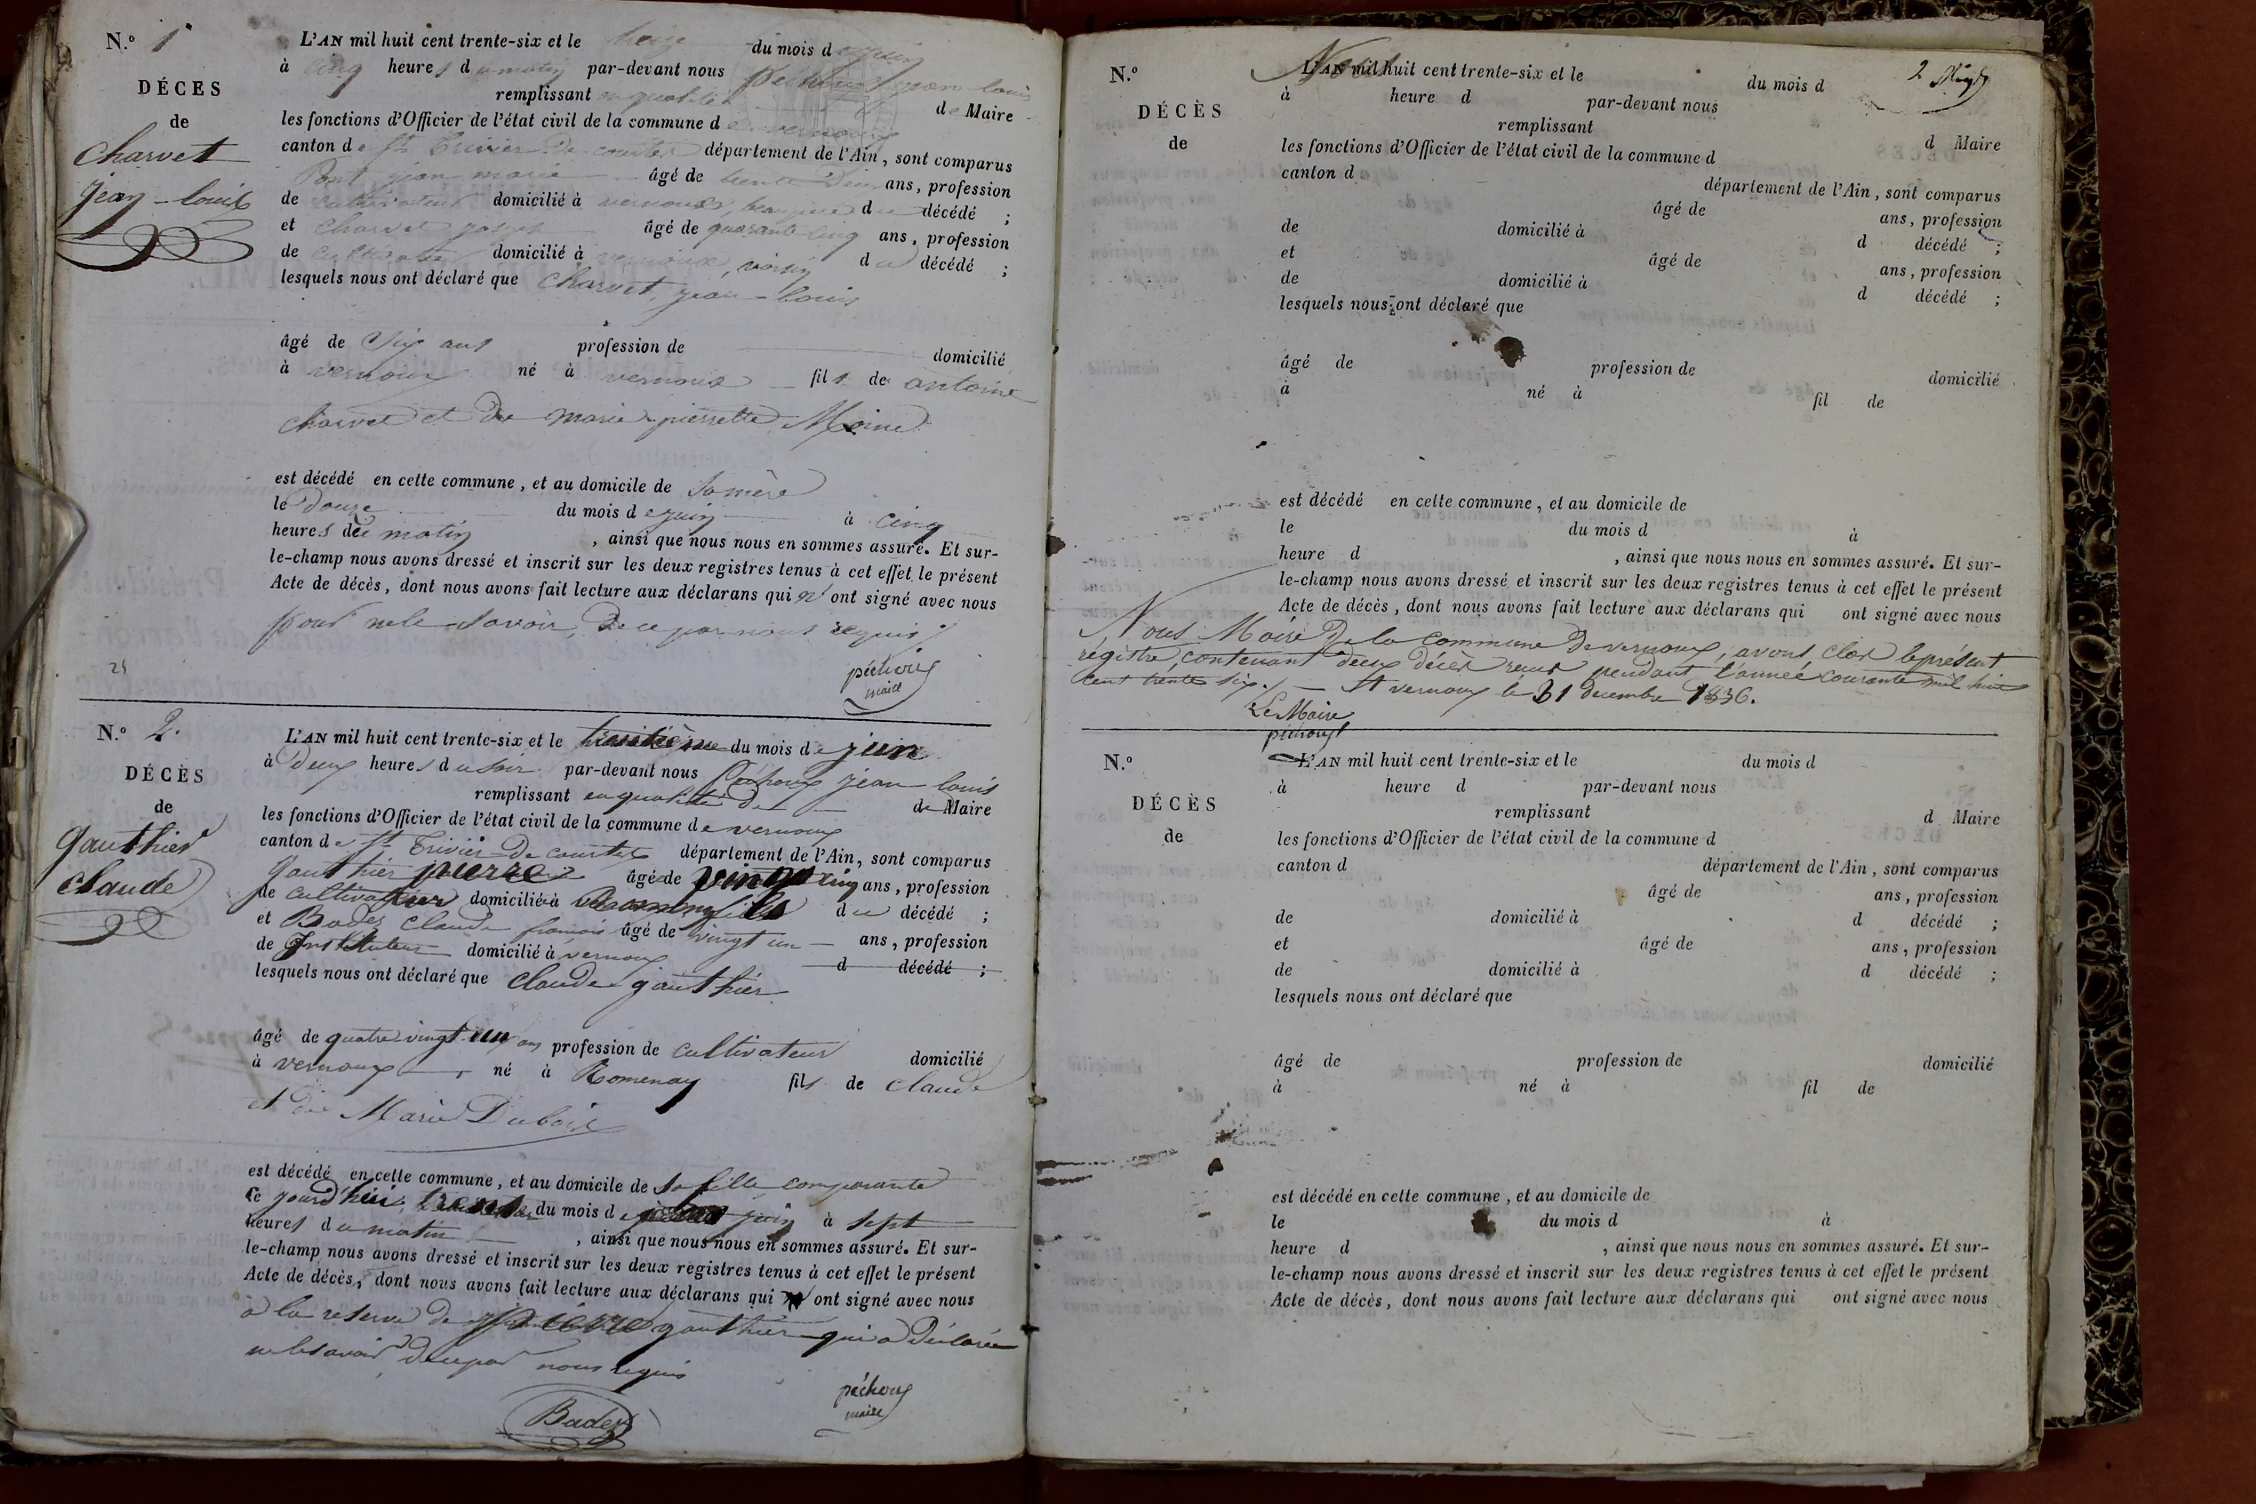 N.º 1
DÉCES
de
Charvet
jean-louis
L'AN mil huit cent trente-six et le treize du mois de juin
à cinq heures du matin par-devant nous péchoux jean louis
remplissant en qualité de Maire
les fonctions d'Officier de l'état civil de la commune de vernoux
canton de St Trivier De courtes département de l'Ain, sont comparus
Pont jean marie âgé de trente deux ans, profession
de cultivateur domicilié à vernoux, du décédé ;
et Charvet âgé de quarante cinq ans, profession
de cultivateur domicilié à vernoux, voisin du décédé ;
lesquels nous ont déclaré que Charvet, jean-louis
âgé de Six ans profession de domicilié
à vernoux né à vernoux fils de antoine
charvet et de marie pierrette Moine
est décédé en cette commune, et au domicile de sa mère
le Douze du mois de juin à cinq
heures du matin, ainsi que nous nous en sommes assuré. Et sur-
le-champ nous avons dressé et inscrit sur les deux registres tenus à cet effet le présent
Acte de décès, dont nous avons fait lecture aux déclarans qui n'ont signé avec nous
pour ne le savoir, De ce par nous requis
péchoux
maire
N.º 2.
DÉCÈS
de
gauthier
claude
L'AN mil huit cent trente-six et le trentième du mois de juin
à Deux heures du soir par-devant nous Péchoux jean louis
remplissant en qualité De de Maire
les fonctions d'Officier de l'état civil de la commune de vernoux
canton de St Trivier De courtes département de l'Ain, sont comparus
Gauthier pierre âgé de vingt cinq ans, profession
de cultivateur domicilié à du décédé ;
et Badez Claude françois âgé de vingt un ans, profession
de Instituteur domicilié à vernoux d décédé ;
lesquels nous ont déclaré que claude gauthier
âgé de quatre vingt un ans profession de cultivateur domicilié
à vernoux né à Romenay fils de claude
et de Marie Dubois
est décédé en cette commune, et au domicile de sa fille comparante
Ce jourd'hui, du mois de juin à sept
heures du matin, ainsi que nous nous en sommes assuré. Et sur-
le-champ nous avons dressé et inscrit sur les deux registres tenus à cet effet le présent
Acte de décès, dont nous avons fait lecture aux déclarans qui ont signé avec nous
à la reserve de pierre gauthier qui a Déclaré
ne le savoir De ce par nous requis
péchoux
maire
Badez
N.º
DÉCÈS
de
L'AN mil huit cent trente-six et le du mois d
à heure d par-devant nous
remplissant d Maire
les fonctions d'Officier de l'état civil de la commune d
canton d département de l'Ain, sont comparus
âgé de ans, profession
de domicilié à d décédé ;
et âgé de ans, profession
de domicilié à d décédé ;
lesquels nous ont déclaré que
âgé de profession de domicilié
à né à fil de
est décédé en cette commune, et au domicile de
le du mois d à
heure d , ainsi que nous nous en sommes assuré. Et sur-
le-champ nous avons dressé et inscrit sur les deux registres tenus à cet effet le présent
Acte de décès, dont nous avons fait lecture aux déclarans qui ont signé avec nous
Nous Maire De la commune De vernoux, avons clos le présent
registre, contenant deux décès reçus pendant l'année courante mil huit
cent trente six. A vernoux le 31 decembre 1836.
Le Maire
péchoux
N.º
DÉCÈS
de
L'AN mil huit cent trente-six et le du mois d
à heure d par-devant nous
remplissant d Maire
les fonctions d'Officier de l'état civil de la commune d
canton d département de l'Ain, sont comparus
âgé de ans, profession
de domicilié à d décédé ;
et âgé de ans, profession
de domicilié à d décédé ;
lesquels nous ont déclaré que
âgé de profession de domicilié
à né à fil de
est décédé en cette commune, et au domicile de
le du mois d à
heure d , ainsi que nous nous en sommes assuré. Et sur-
le-champ nous avons dressé et inscrit sur les deux registres tenus à cet effet le présent
Acte de décès, dont nous avons fait lecture aux déclarans qui ont signé avec nous